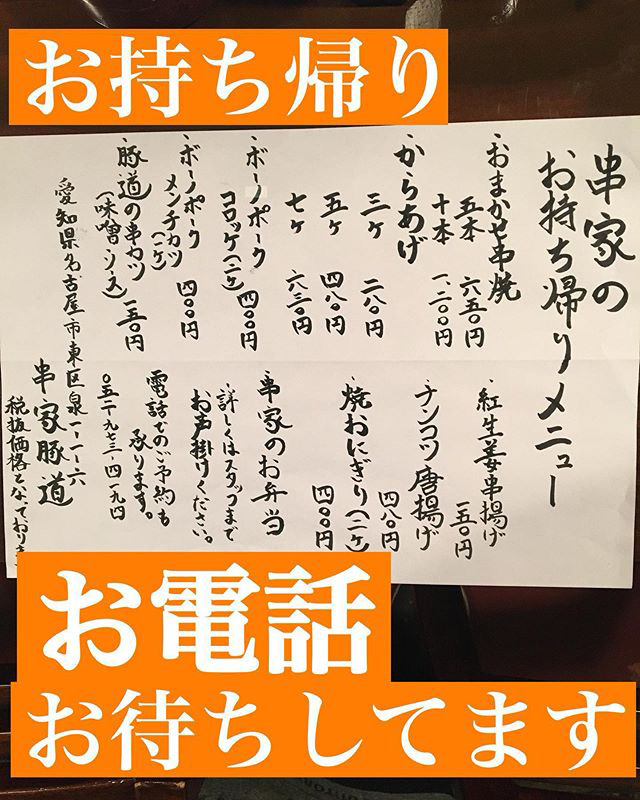 お持ち帰り
串家の
お持ち帰りメニュー
・おまかせ串焼
五本 六五〇円
十本 一、二〇〇円
・からあげ
三ヶ 二八〇円
五ヶ 四八〇円
七ヶ 六三〇円
・ボーノポーク
コロッケ(二ヶ) 四〇〇円
・ボーノポーク
メンチカツ(二ヶ) 四〇〇円
・豚道の串カツ
(味噌・ソース) 一五〇円
・紅生姜串揚げ
一五〇円
・ナンコツ唐揚げ
四八〇円
・焼おにぎり(二ヶ)
四〇〇円
串家のお弁当
・詳しくはスタッフまで
お声掛けください。
電話でのご予約も
承ります。
〇五二・九七三・四一九四
愛知県名古屋市東区泉一ー一ー六
串家豚道
税抜価格となっております
お電話
お待ちしてます